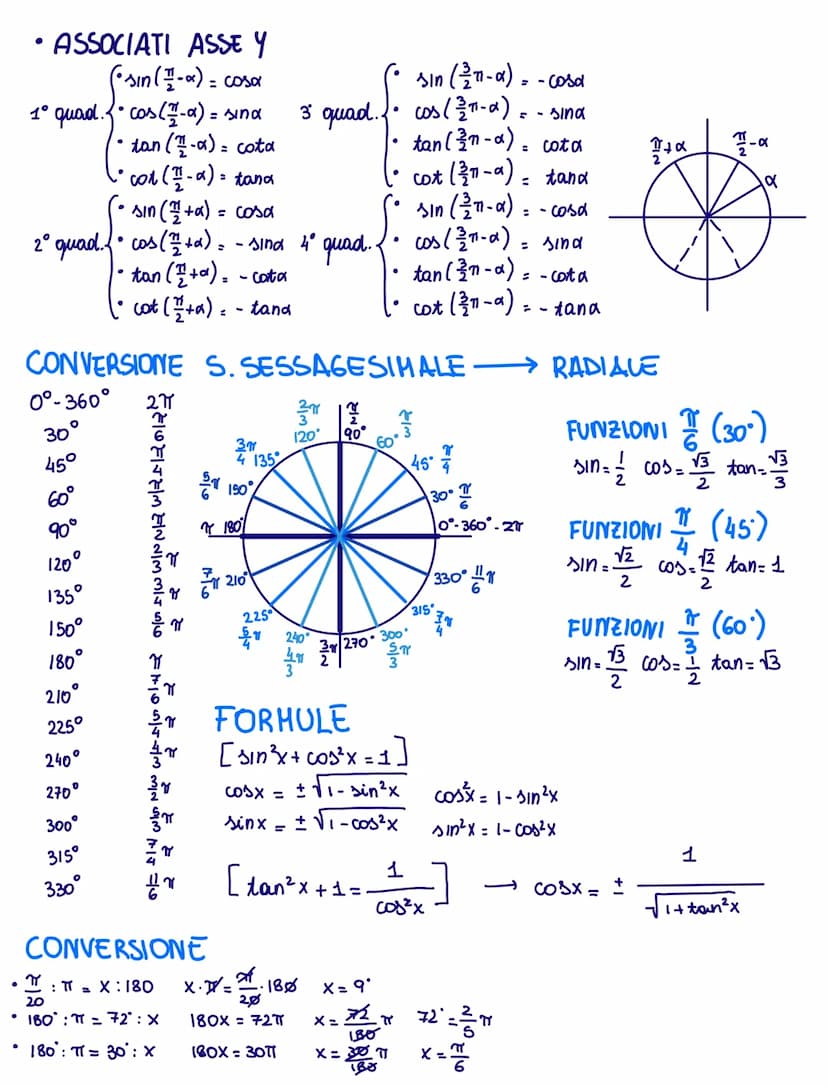 • ASSOCIATI ASSE Y
1° quad.
• sin(π/2-α) = cosα
• cos(π/2-α) = sinα
• tan(π/2-α) = cotα
• cot(π/2-α) = tanα
2° quad.
• sin(π/2+α) = cosα
• cos(π/2+α) = - sinα
• tan(π/2+α) = - cotα
• cot(π/2+α) = - tanα
3° quad.
• sin(3/2π-α) = - cosα
• cos(3/2π-α) = - sinα
• tan(3/2π-α) = cotα
• cot(3/2π-α) = tanα
4° quad.
• sin(3/2π-α) = - cosα
• cos(3/2π-α) = sinα
• tan(3/2π-α) = - cotα
• cot(3/2π-α) = - tanα
π/2+α π/2-α
α
CONVERSIONE S. SESSAGESIMALE → RADIALE
0°-360° 2π
30° π/6
45° π/4
60° π/3
90° π/2
120° 2/3 π
135° 3/4 π
150° 5/6 π
180° π
210° 7/6 π
225° 5/4 π
240° 4/3 π
270° 3/2 π
300° 5/3 π
315° 7/4 π
330° 11/6 π
2/3π 120°
π/2 90°
60° π/3
3π/4 135°
45° π/4
5/6π 150°
30° π/6
π 180°
0°-360°-2π
7/6π 210°
330° 11/6π
225° 5/4π
315° 7/4π
240° 4π/3
3π/2 270°
300° 5π/3
FUNZIONI π/6 (30°)
sin=1/2 cos=√3/2 tan=√3/3
FUNZIONI π/4 (45°)
sin=√2/2 cos=√2/2 tan=1
FUNZIONI π/3 (60°)
sin=√3/2 cos=1/2 tan=√3
FORMULE
[sin²x+cos²x=1]
cosx = ±√1-sin²x cos²x = 1-sin²x
sinx = ±√1-cos²x sin²x = 1-cos²x
[tan²x+1=1/cos²x] → cosx = ± 1/√1+tan²x
CONVERSIONE
• π/20 : π = x : 180 x·π=π/20·180 x=9°
• 180° : π = 72° : x 180x = 72π x=72/180 π 72°=2/5π
• 180° : π = 30° : x 180x = 30π x=30/180 π x=π/6